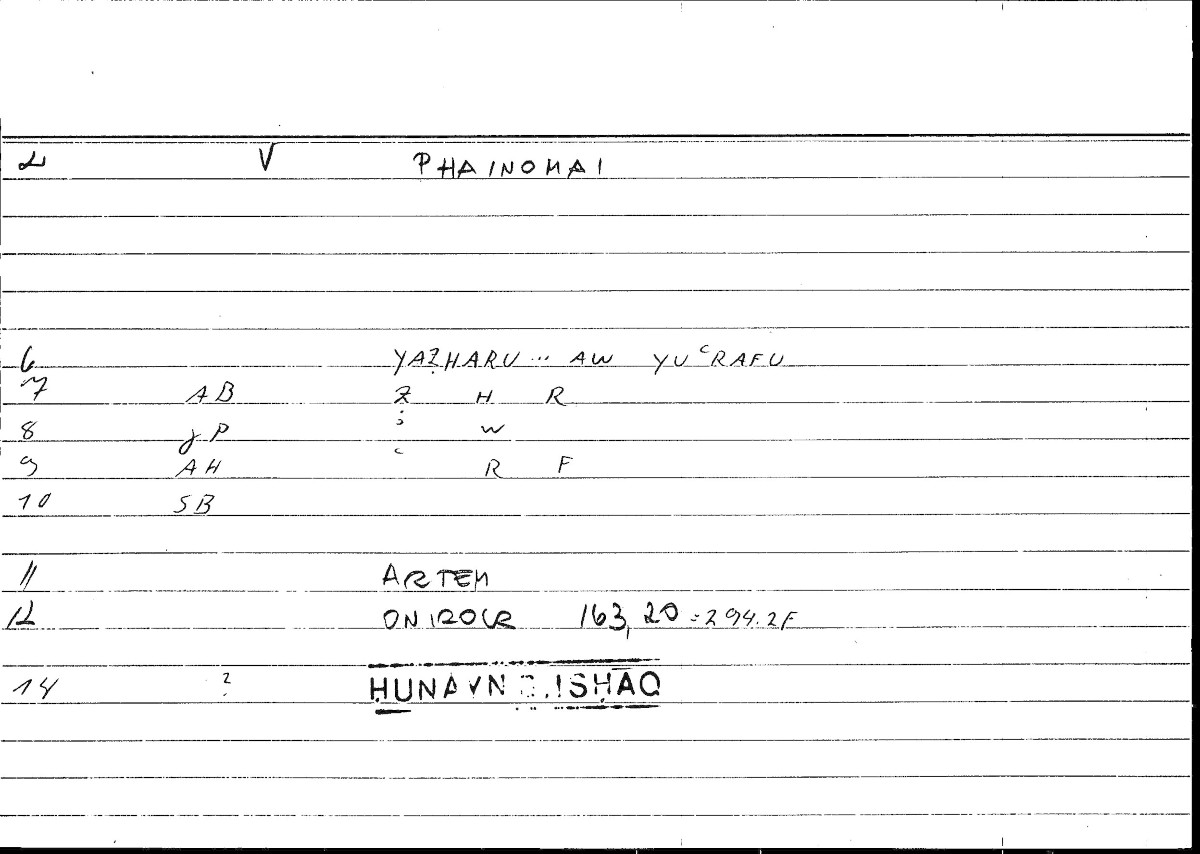 2 V PHAINOMAI
6 YAẒHARU ... AW YUʿRAFU
7 AB Ẓ H R
8 JP ʾ W
9 AH ʿ R F
10 SB
11 ARTEM
12 ONIROCR 163,20 = 294.2F
14 ? ḤUNAYN B. ISḤĀQ